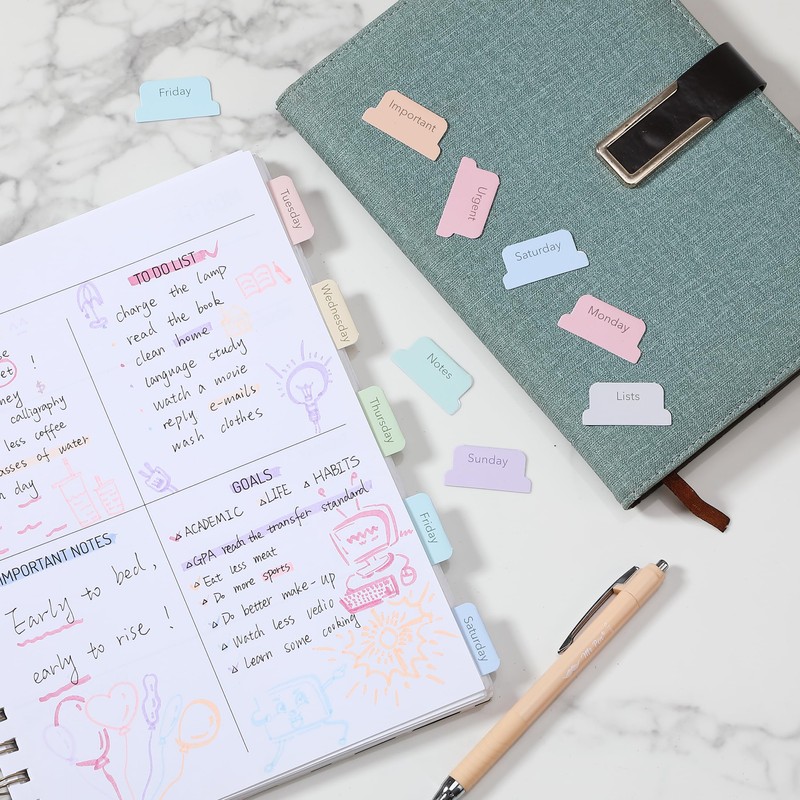 Friday
Important
Urgent
Saturday
Monday
Lists
Notes
Sunday
Tuesday
Wednesday
Thursday
Friday
Saturday
TO DO LIST
charge the lamp
read the book
clean home
language study
watch a movie
reply e-mails
wash clothes
!
calligraphy
less coffee
of water
day
GOALS
ACADEMIC LIFE HABITS
GPA reach the transfer standard
Eat less meat
Do more sports
Do better make-up
Watch less vedio
Learn some cooking
IMPORTANT NOTES
Early to bed,
early to rise !